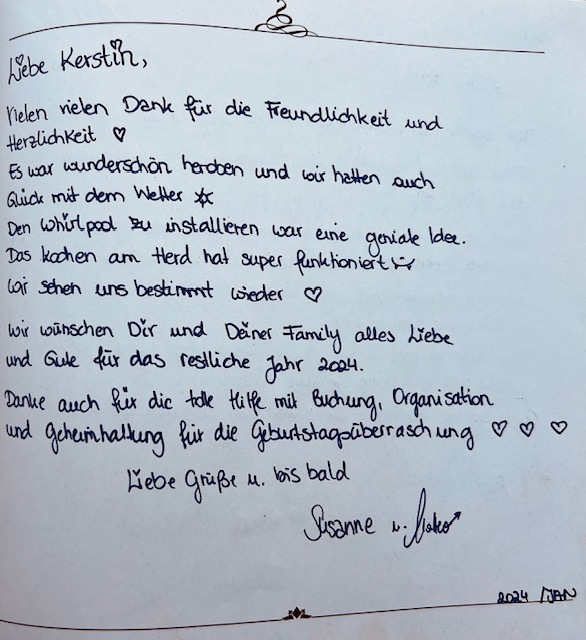 Liebe Kerstin,
Vielen vielen Dank für die Freundlichkeit und
Herzlichkeit ♡
Es war wunderschön heroben und wir hatten auch
Glück mit dem Wetter ☆
Den Whirlpool zu installieren war eine geniale Idee.
Das kochen am Herd hat super funktioniert
Wir sehen uns bestimmt wieder ♡
Wir wünschen Dir und Deiner Family alles Liebe
und Gute für das restliche Jahr 2024.
Danke auch für die tolle Hilfe mit Buchung, Organisation
und Geheimhaltung für die Geburtstagsüberraschung ♡ ♡ ♡
Liebe Grüße u. bis bald
Susanne u.
2024 /JAN